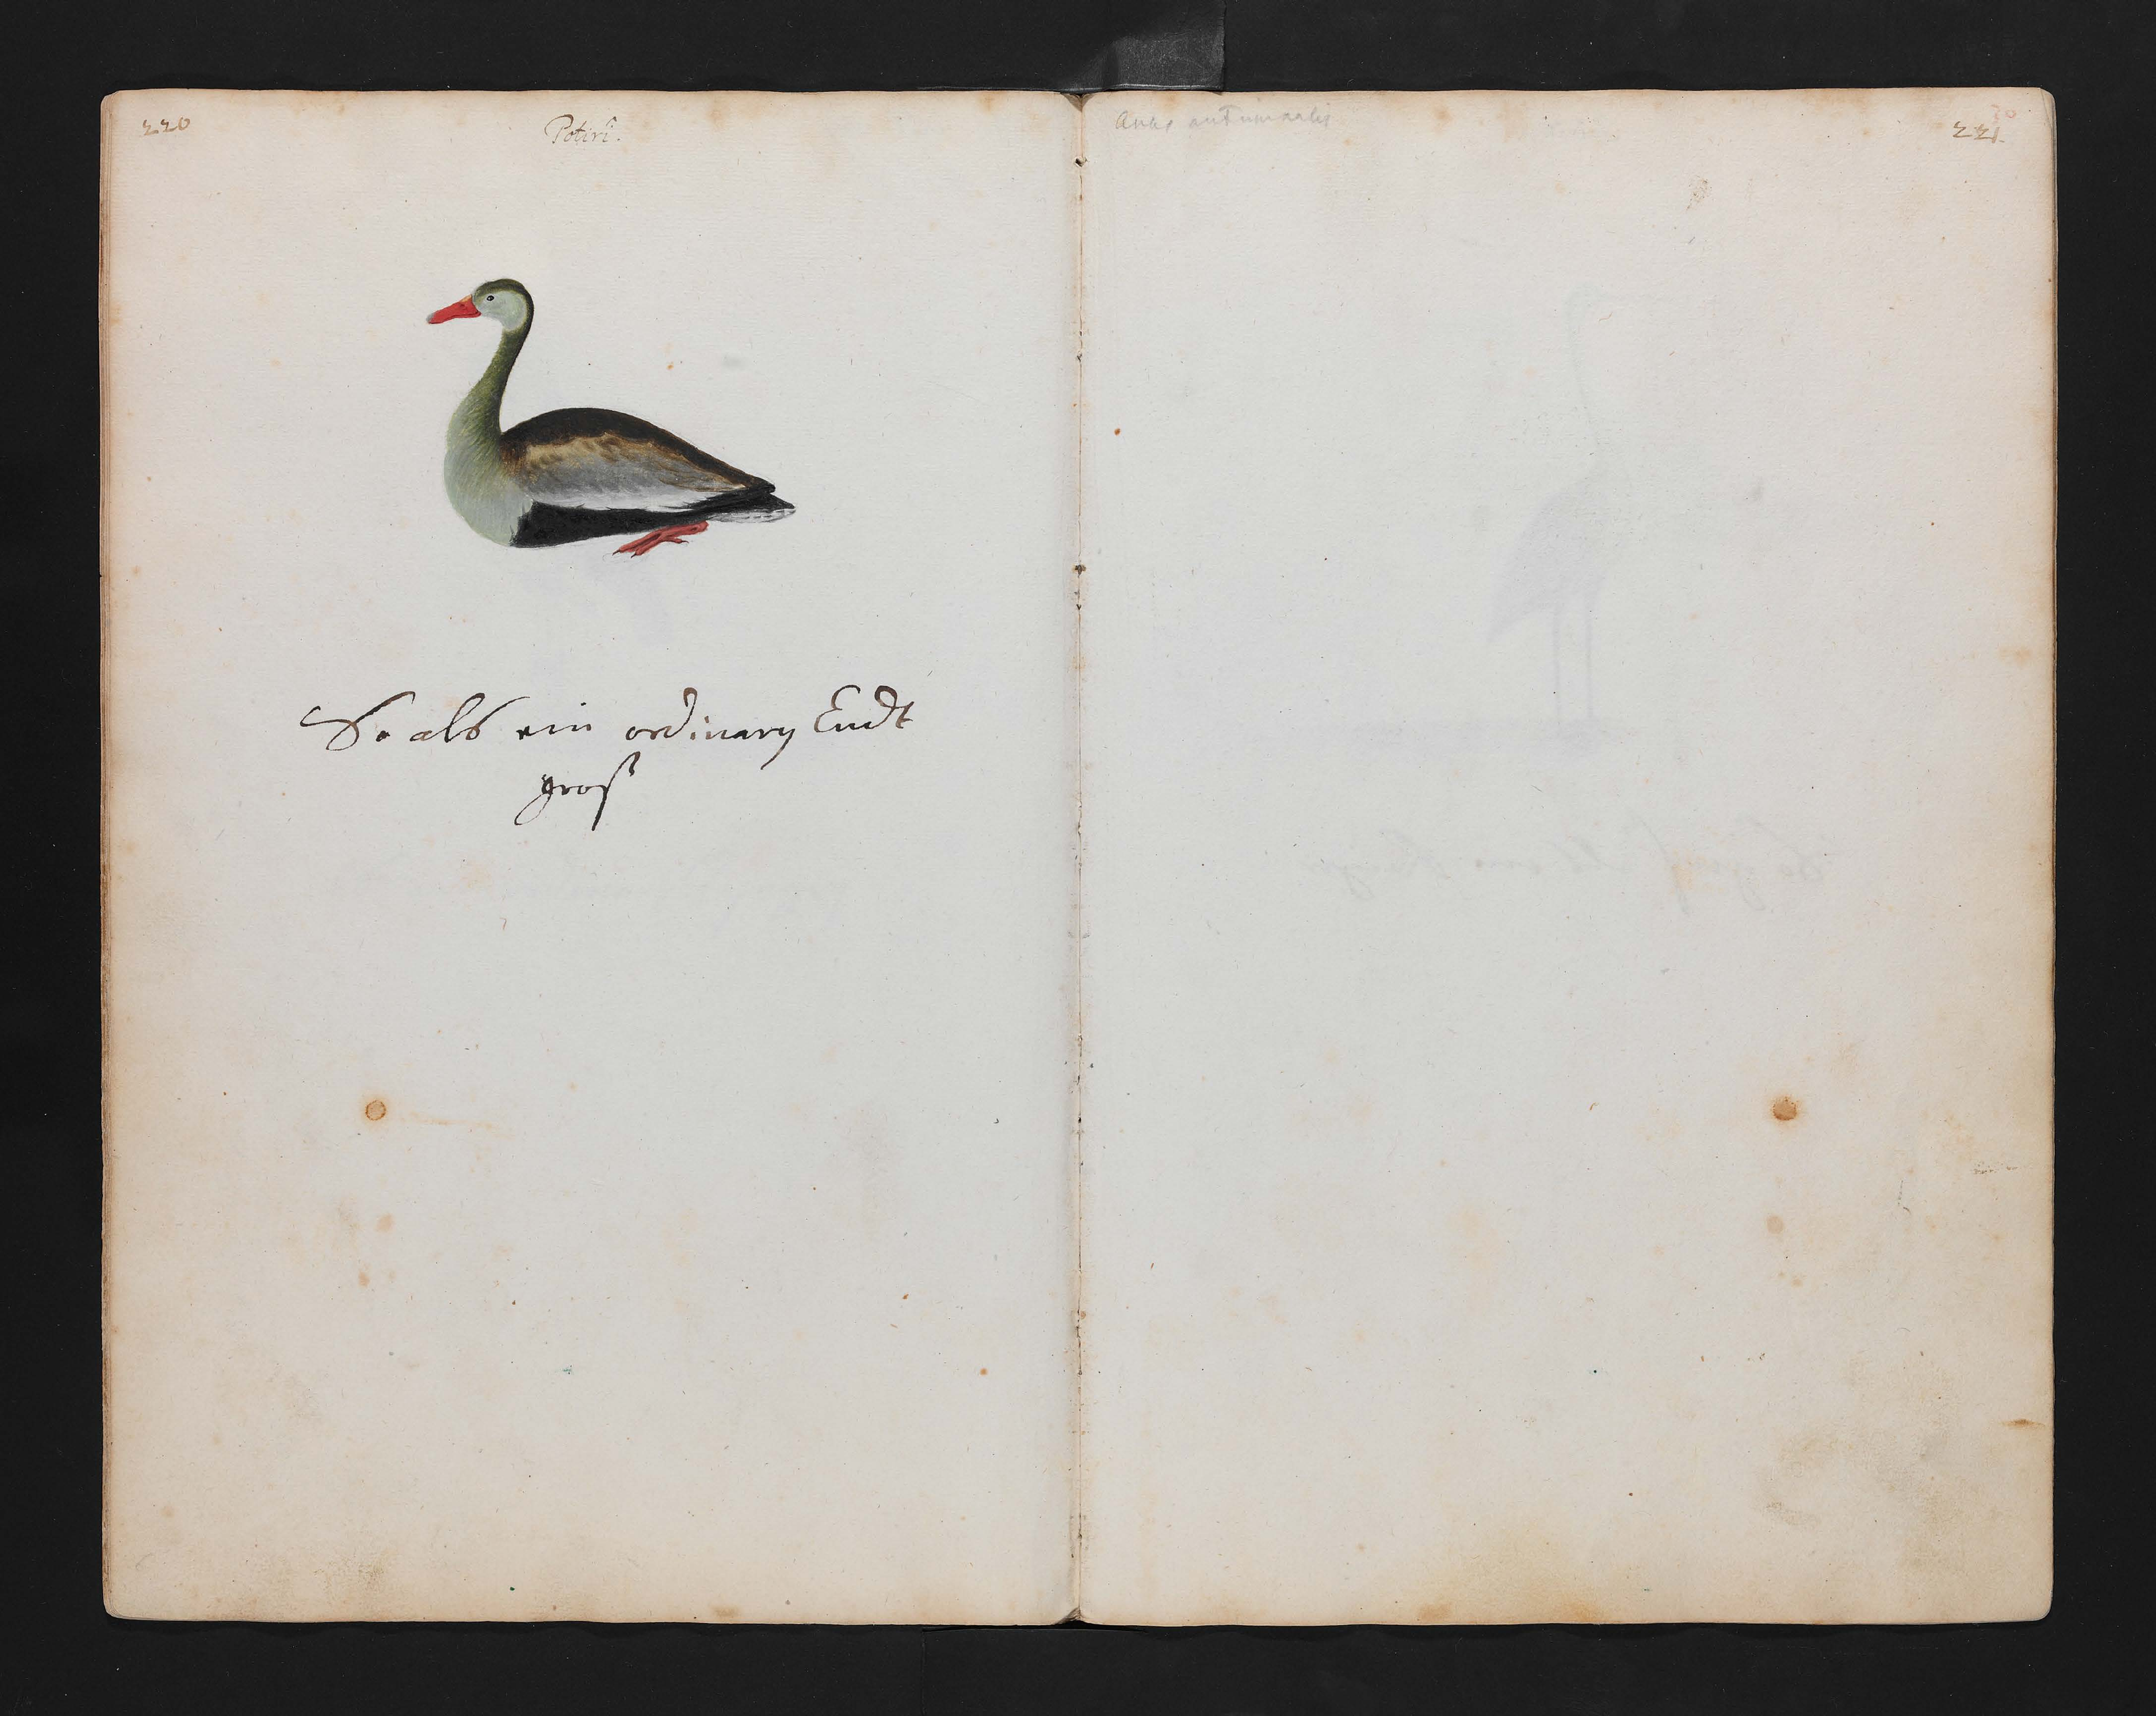 220
Potiri.
So als ein ordinary Endt
groß
Anas autumnalis
30
221.